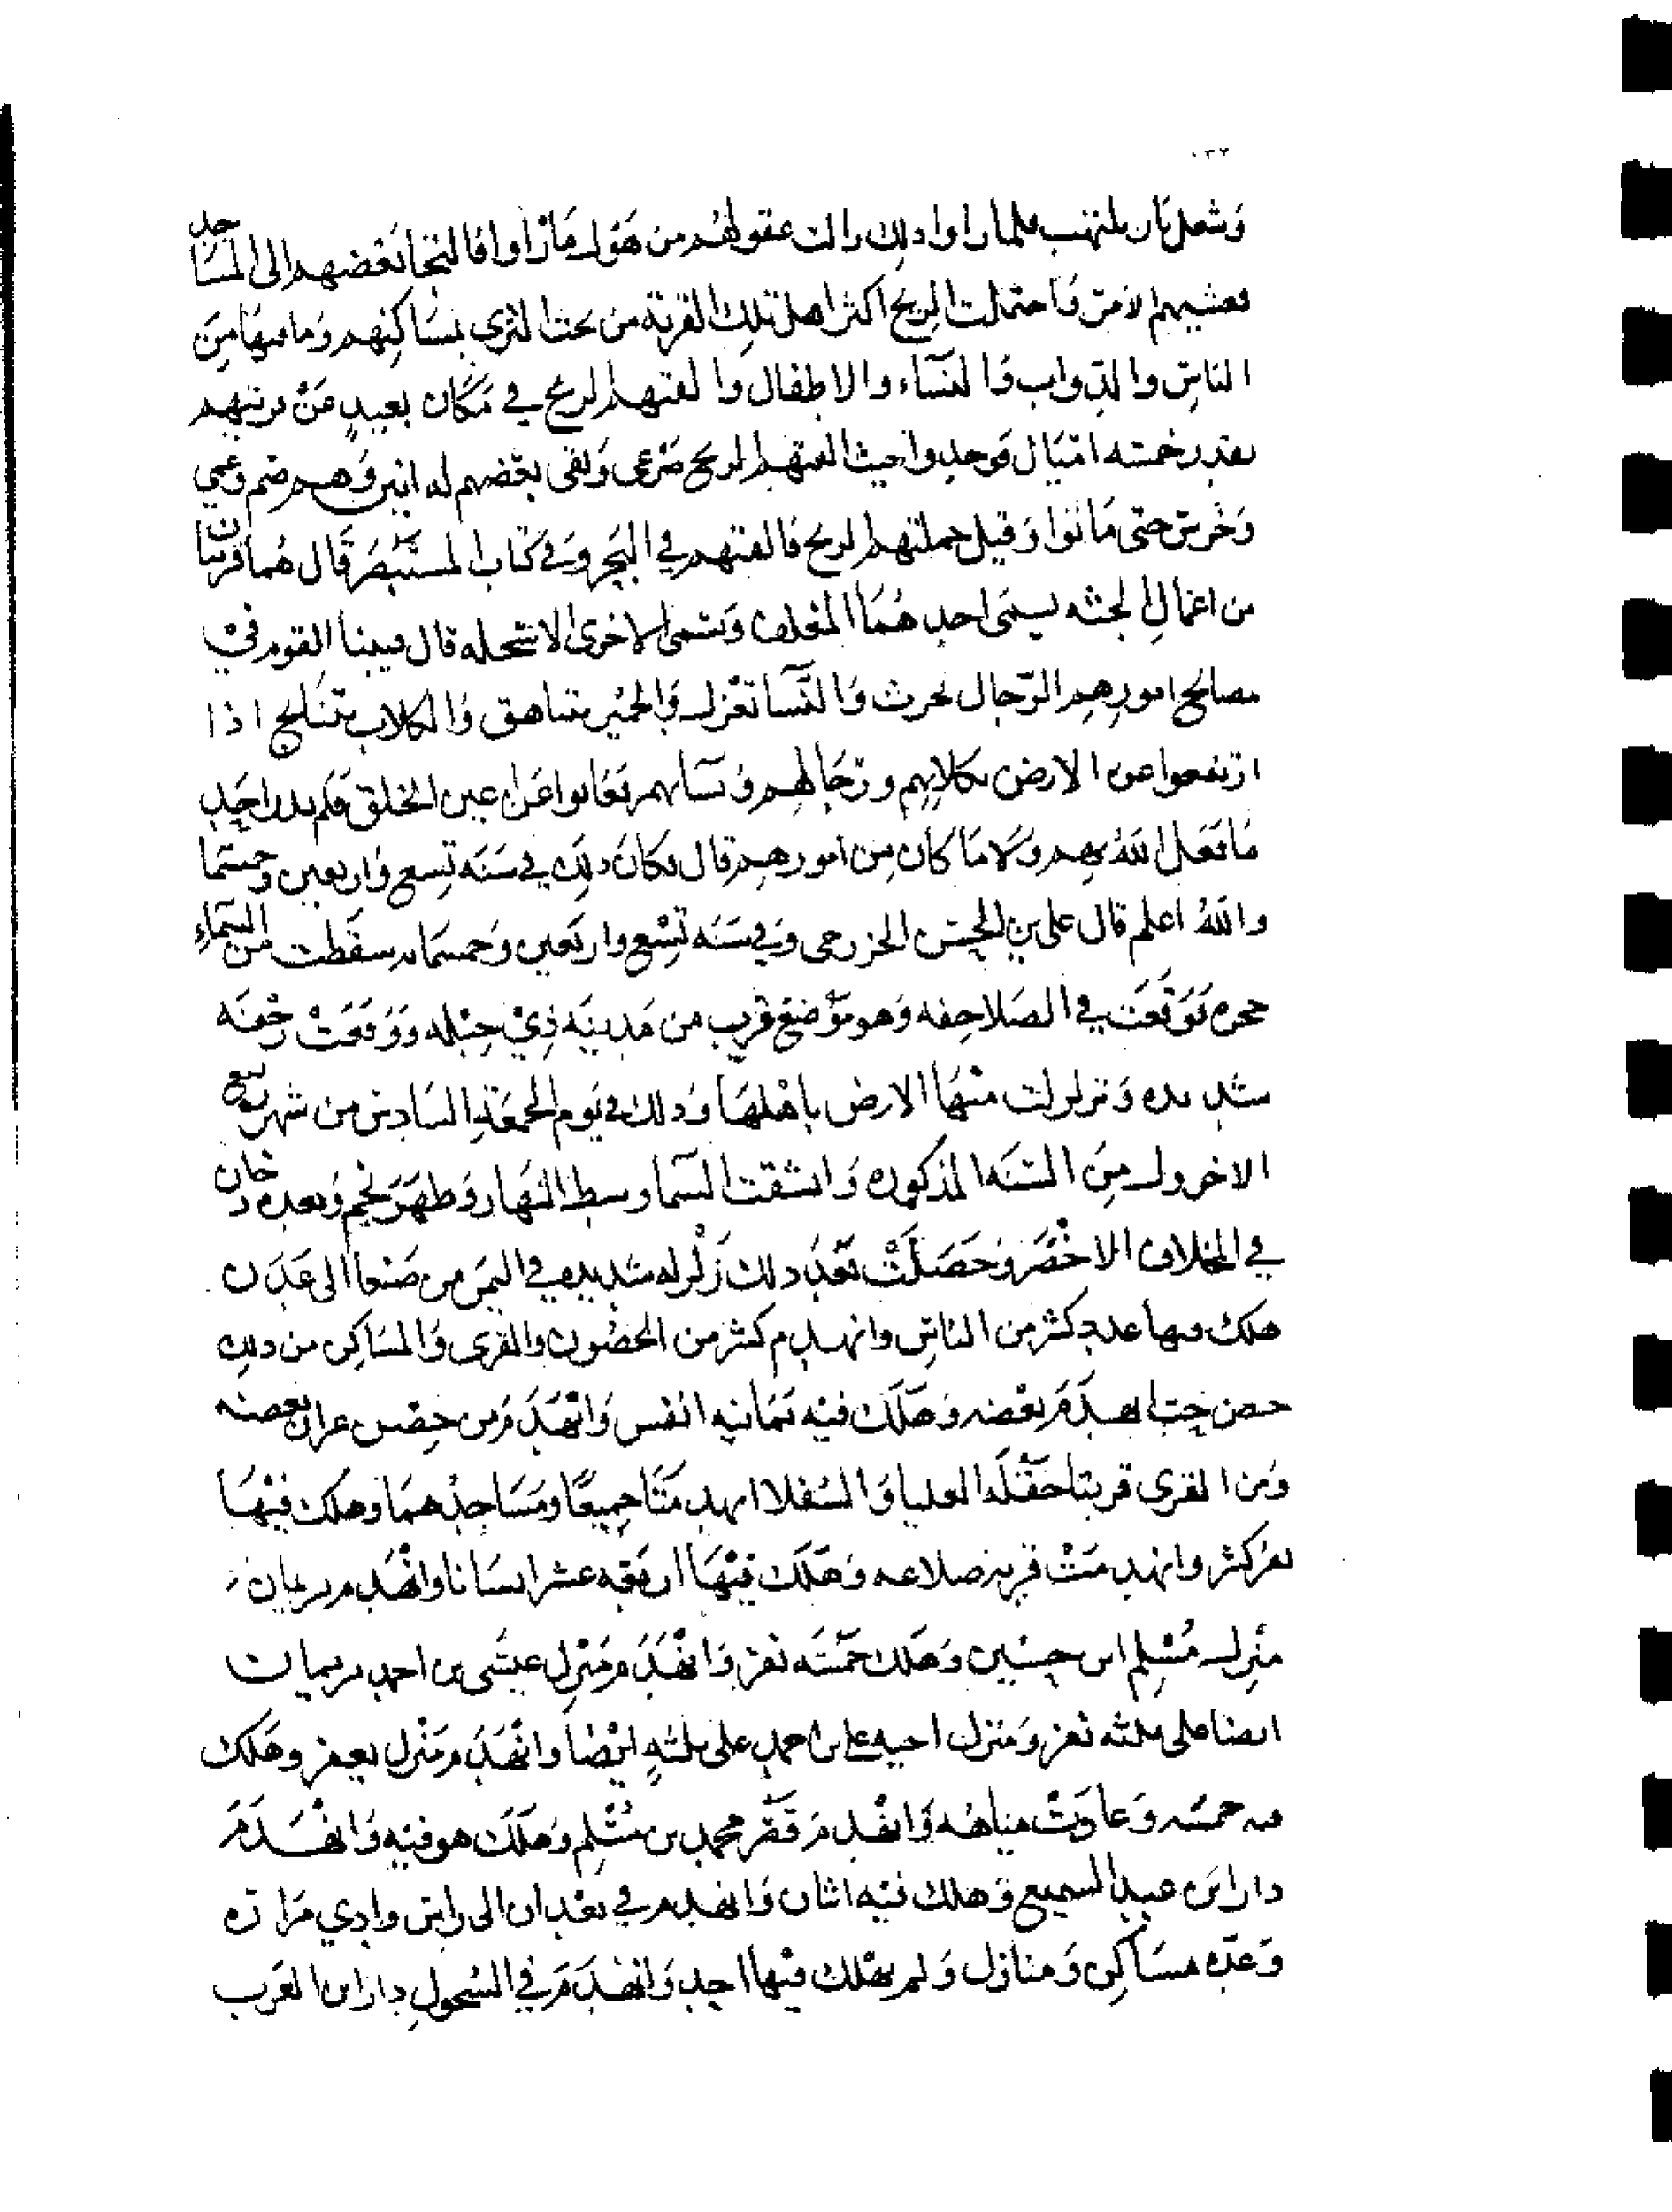 ١٣٢
وشعل نار يلتهب فلما راوا ذلك زالت عقولهم من هول ما راوا فالتجا بعضهم الى المساجد
فغشيهم الامر فاحتملت الريح اكثر اهل تلك القرية من تحت الثرى بمساكنهم وما فيها من
الناس والدواب والنساء والاطفال والقتهم الريح في مكان بعيد عن قريتهم
بقدر خمسة اميال فوجدوا حيث القتهم الريح صرعى وبقى بعضهم له انين وهم صم وعمي
وخرس حتى ماتوا وقيل حملتهم الريح فالقتهم في البحر وفي كتاب المستبصر قال هما قريتان
من اعمال الجثه يسمى احدهما المغلف وتسمى الاخرى الاسحله قال فبينا القوم في
مصالح امورهم الرجال تحرث والنسا تغزل والحمير تتناهق والكلاب تتنابح اذا
ارتفعوا عن الارض بكلابهم ورجالهم ونسايهم فغابوا عن اعين الخلق فلم يدر احد
ما فعل الله بهم ولا ما كان من امورهم قال وكان ذلك في سنه تسع واربعين وخمسما
والله اعلم قال على بن الحسن الخزرجى وفي سنه تسع واربعين وخمسمايه سقطت من السماء
حجره فوقعت في الصلاحفه وهو موضع قريب من مدينه ذي جبله ووقعت رجفه
شديده وتزلزلت منها الارض باهلها وذلك في يوم الجمعة السادس من شهر ربيع
الاخر ولـ من السنه المذكوره وانشقت السما وسط النهار وظهر نجم وبعده دخان
في المخلاف الاخضر وحصلت بعد ذلك زلزله شديده في اليمن من صنعا الى عدن
هلك فيها عدد كثر من الناس وانهدم كثر من الحصون والقرى والمساكن من ذلك
حصن حب انهدم بعضه وهلك فيه ثمانيه انفس وانهدم من حصن عزان بعضه
ومن القري قريتا حقله العليا والسفلا انهدمتا جميعا ومساجدهما وهلك فيها
نفر كثر وانهدمت قرية صلاعه وهلك فيها اربعه عشر انسانا وانهدم بريمان
منزل مسلم ابن حسين وهلك خمسه نفر وانهدم منزل عيسى بن احمد بريمان
ايضا على ثلثه نفر ومنزل اخيه على بن احمد على ثلثه ايضا وانهدم منزل بعيفر وهلك
فيه خمسه وغارت مياهه وانهدم قصر محمد بن مسلم وهلك هو فيه وانهدم
دار ابن عبد السميع وهلك فيه اثنان وانهدم في بعدان الى راس وادي
وعده مساكن ومنازل ولم يهلك فيها احد وانهدم في السحول دار ابن العرب